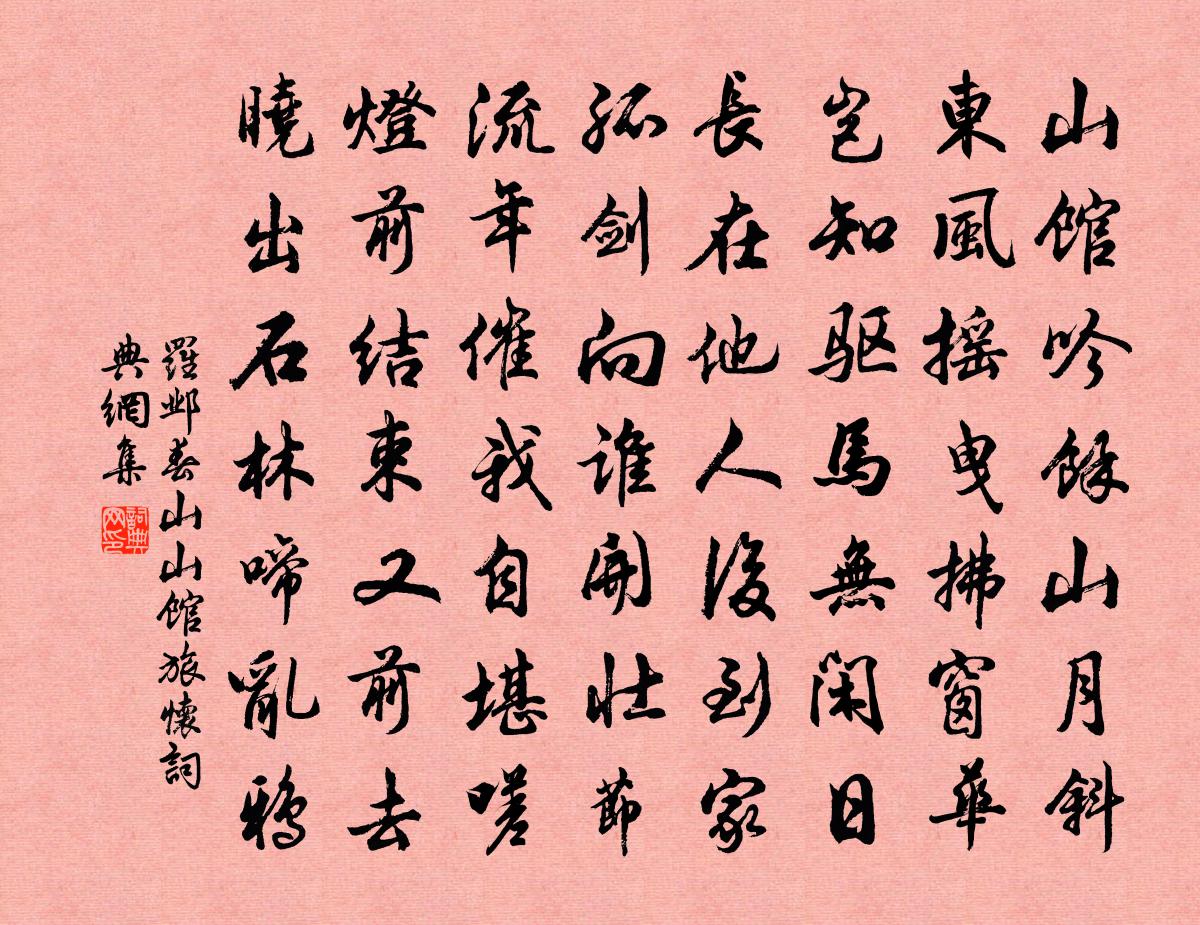 山館吟餘山月斜
東風搖曳拂窗華
豈知驱馬無閑日
長在他人後到家
孤劍向誰開壯節
流年催我自堪嗟
燈前結束又前去
曉出石林啼亂鴉
羅邺春山山館旅懷詞
典網集
詞典網印